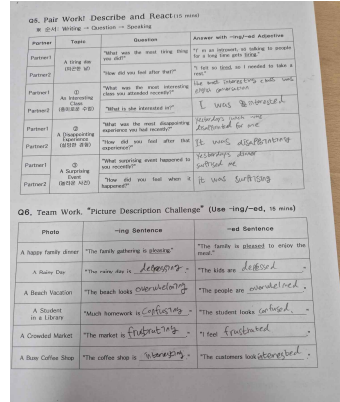 Q5. Pair Work! Describe and React (15 mins)
※ 순서: Writing → Question → Speaking
Partner Topic Question Answer with -ing/-ed Adjective
Partner1 A tiring day "What was the most tiring thing you did?" "I'm an introvert, so talking to people for a long time gets tiring."
Partner2 (피곤한 날) "How did you feel after that?" "I felt so tired, so I needed to take a rest."
Partner1 ① An Interesting Class "What was the most interesting class you attended recently?" the most interesting class was
Partner2 (흥미로운 수업) "What is she interested in?" I was interested
Partner1 ② A Disappointing Experience "What was the most disappointing experience you had recently?" Yesterday's lunch was disappointed for me
Partner2 (실망한 경험) "How did you feel after that experience?" It was disappointing
Partner1 ③ A Surprising Event "What surprising event happened to you recently?" Yesterdays dinner surprised me
Partner2 (놀라운 사건) "How did you feel when it happened?" it was surprising
Q6. Team Work. "Picture Description Challenge" (Use -ing/-ed, 15 mins)
Photo -ing Sentence -ed Sentence
A happy family dinner "The family gathering is pleasing." "The family is pleased to enjoy the meal."
A Rainy Day "The rainy day is depressing." "The kids are depressed."
A Beach Vacation "The beach looks overwhelming." "The people are overwhelmed."
A Student in a Library "Much homework is confusing." "The student looks confused."
A Crowded Market "The market is frustrating." "I feel frustrated."
A Busy Coffee Shop "The coffee shop is interesting." "The customers look interested."